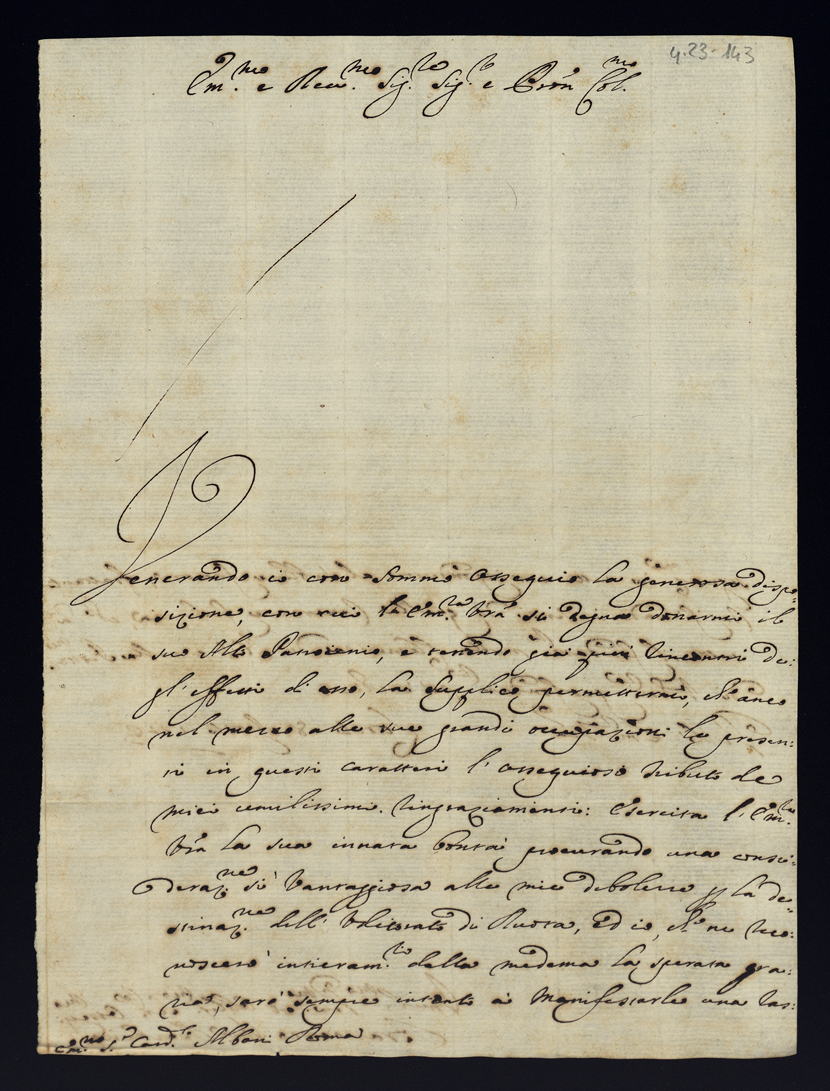 4-23-143
Em.mo e Reu.mo Sig.re Sig.r e Pron Col.mo
Venerando io con sommo ossequio la generosa dispo-
sizione, con cui l'Em.za Vra si degna donarmi il
suo Alto Patrocinio, e tenendo già i riscontri de-
gl'effetti di esso, la supplico permettermi, ch'anco
nel mezzo alle sue grandi occupazioni le presen-
ti in questi caratteri l'ossequioso tributo de
miei umilissimi ringraziamenti: esercita l'Em.za
Vra la sua innata bontà procurando una consi-
deraz.ne sì vantaggiosa alle mie debolezze p la de-
stinaz.ne dell'Uditorato di Ruota, ed io, che ne rico-
noscerò intieram.te dalla medema la sperata gra-
zia, sarò sempre intento a manifestarle una ras-
Em.mo S.r Card.le Albani Roma